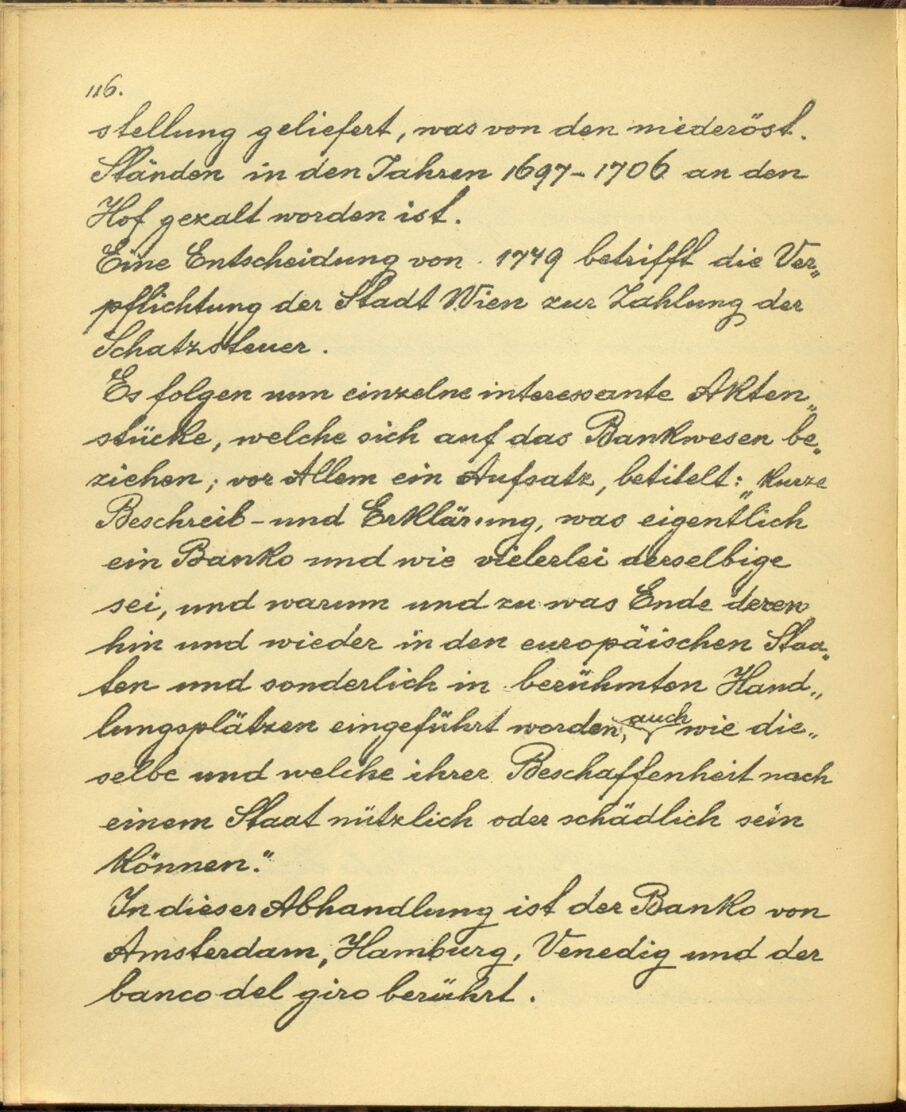 116.
stellung geliefert, was von den niederöst.
Ständen in den Jahren 1697-1706 an den
Hof gezalt worden ist.
Eine Entscheidung von 1749 betrifft die Ver„
pflichtung der Stadt Wien zur Zahlung der
Schatzsteuer.
Es folgen nun einzelne interessante Akten„
stücke, welche sich auf das Bankwesen be„
ziehen; vor Allem ein Aufsatz, betitelt: „Kurze
Beschreib- und Erklärung, was eigentlich
ein Banko und wie vielerlei derselbige
sei, und warum und zu was Ende deren
hin und wieder in den europäischen Staa„
ten und sonderlich in berühmten Hand„
lungsplätzen eingeführt worden, auch wie die„
selbe und welche ihrer Beschaffenheit nach
einem Staat nützlich oder schädlich sein
können."
In dieser Abhandlung ist der Banko von
Amsterdam, Hamburg, Venedig und der
banco del giro berührt.